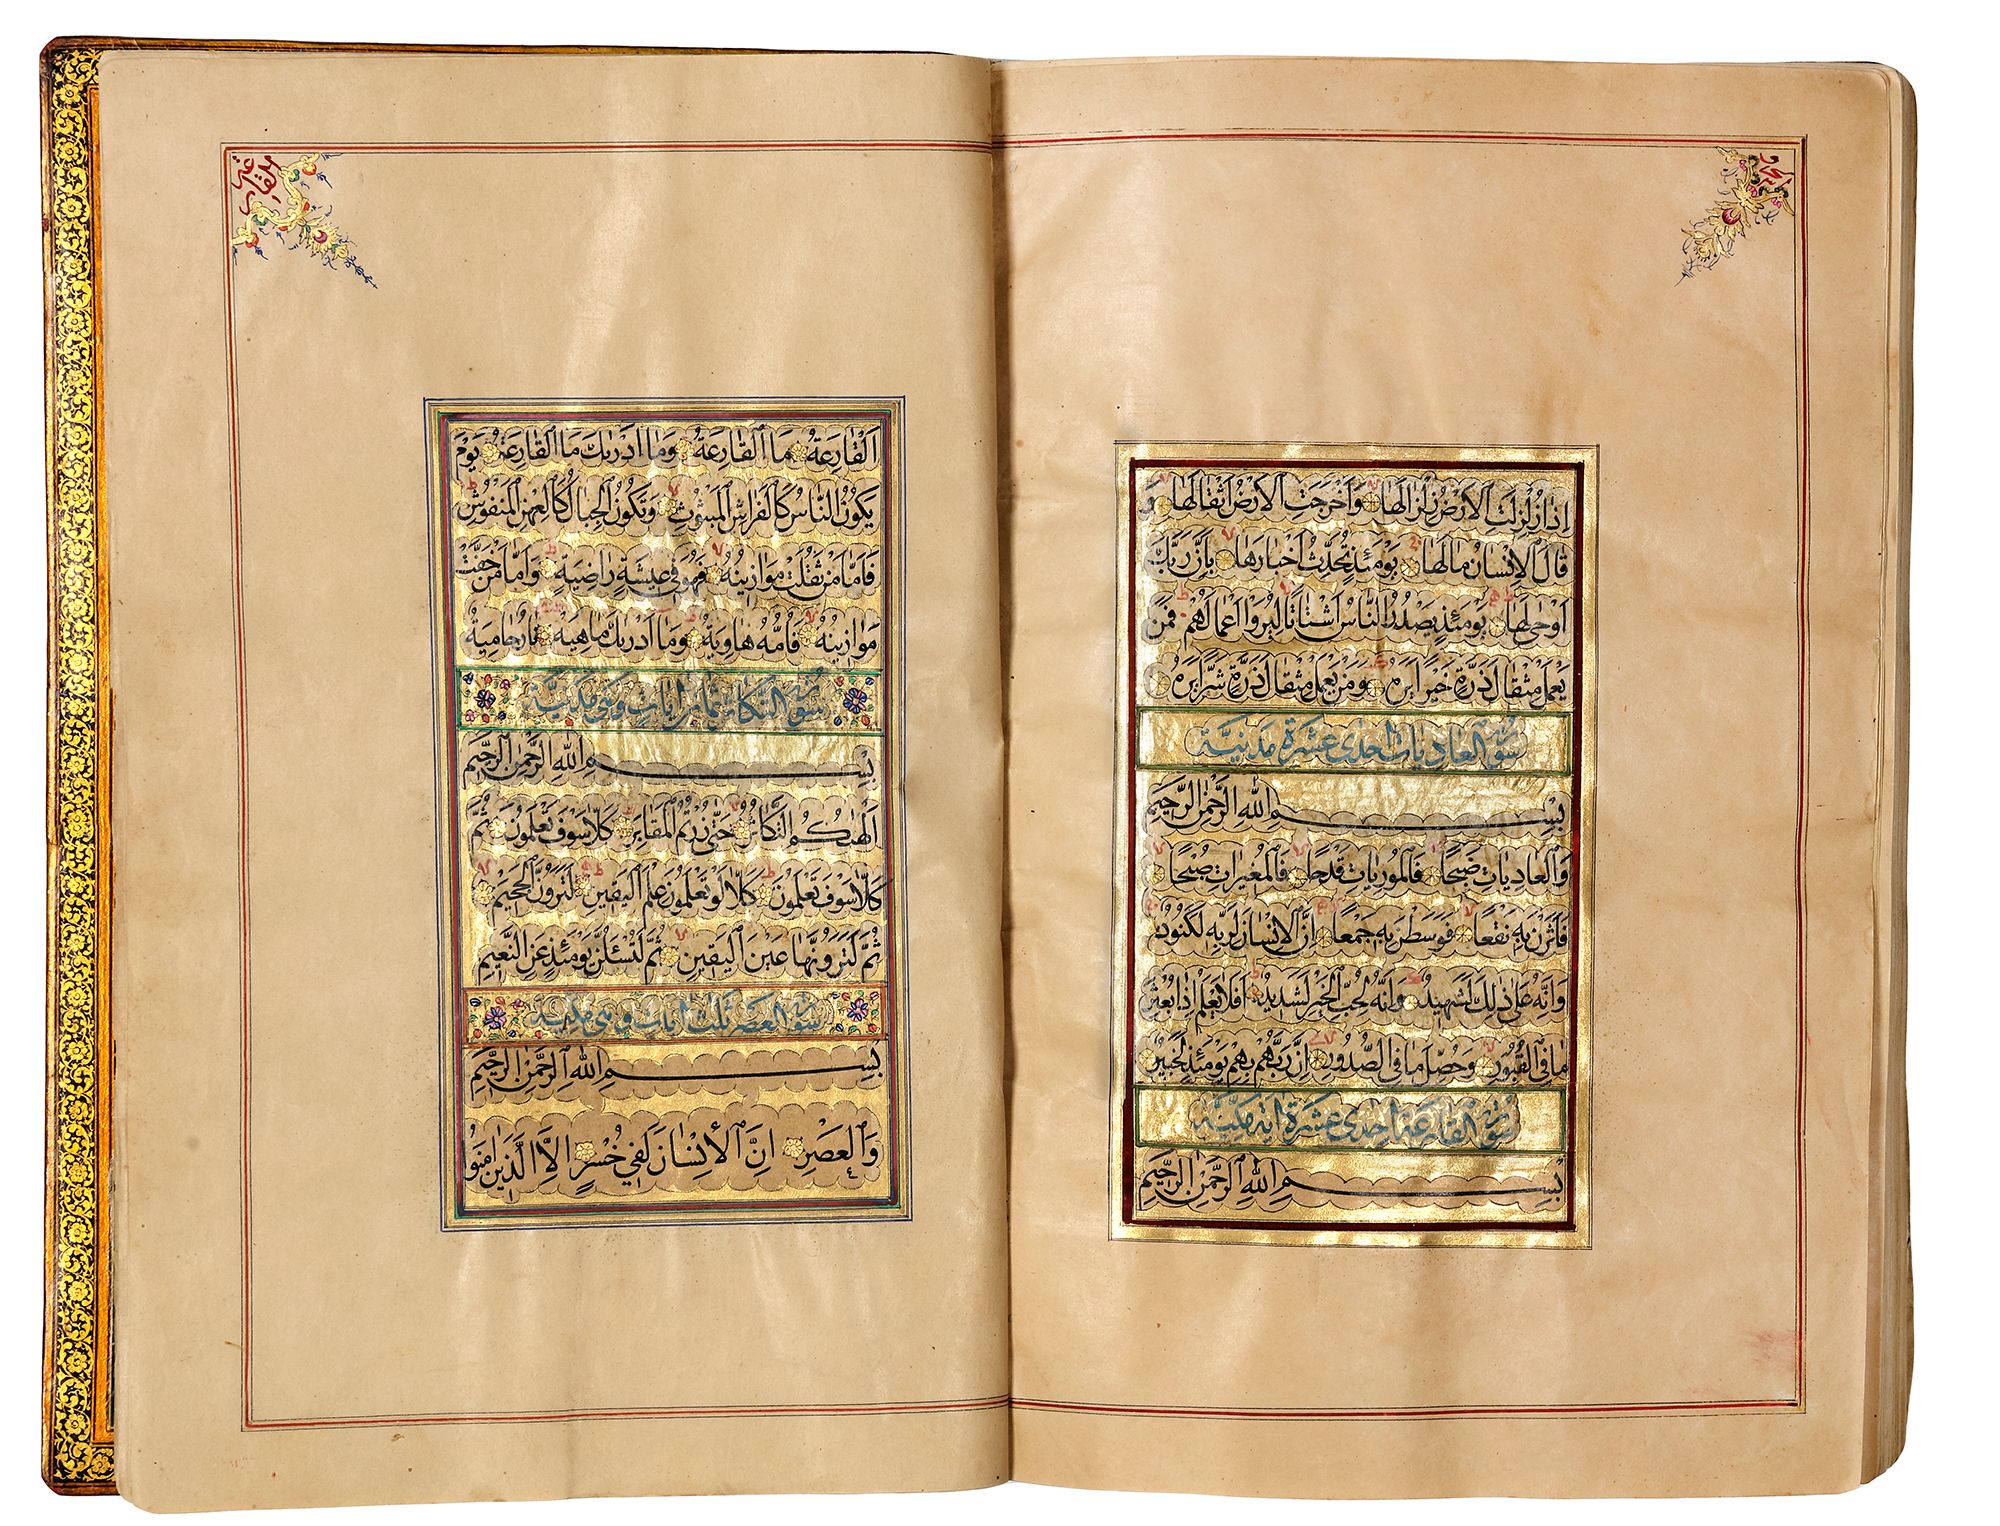 اِذَا زُلْزِلَتِ الْاَرْضُ زِلْزَالَهَا وَاَخْرَجَتِ الْاَرْضُ اَثْقَالَهَا وَ
قَالَ الْاِنْسَانُ مَالَهَا يَوْمَئِذٍ تُحَدِّثُ اَخْبَارَهَا بِاَنَّ رَبَّكَ
اَوْحٰى لَهَا يَوْمَئِذٍ يَصْدُرُ النَّاسُ اَشْتَاتًا لِيُرَوْا اَعْمَالَهُمْ فَمَنْ
يَعْمَلْ مِثْقَالَ ذَرَّةٍ خَيْرًا يَرَهُ وَمَنْ يَعْمَلْ مِثْقَالَ ذَرَّةٍ شَرًّا يَرَهُ
سورة العاديات احدى عشرة مدنية
بِسْمِ اللهِ الرَّحْمٰنِ الرَّحِيمِ
وَالْعَادِيَاتِ ضَبْحًا فَالْمُورِيَاتِ قَدْحًا فَالْمُغِيرَاتِ صُبْحًا
فَاَثَرْنَ بِهِ نَقْعًا فَوَسَطْنَ بِهِ جَمْعًا اِنَّ الْاِنْسَانَ لِرَبِّهِ لَكَنُودٌ
وَاِنَّهُ عَلٰى ذٰلِكَ لَشَهِيدٌ وَاِنَّهُ لِحُبِّ الْخَيْرِ لَشَدِيدٌ اَفَلَا يَعْلَمُ اِذَا بُعْثِرَ
مَا فِي الْقُبُورِ وَحُصِّلَ مَا فِي الصُّدُورِ اِنَّ رَبَّهُمْ بِهِمْ يَوْمَئِذٍ لَخَبِيرٌ
سورة القارعة احدى عشرة اية مكية
بِسْمِ اللهِ الرَّحْمٰنِ الرَّحِيمِ
اَلْقَارِعَةُ مَا الْقَارِعَةُ وَمَا اَدْرٰيكَ مَا الْقَارِعَةُ يَوْمَ
يَكُونُ النَّاسُ كَالْفَرَاشِ الْمَبْثُوثِ وَتَكُونُ الْجِبَالُ كَالْعِهْنِ الْمَنْفُوشِ
فَاَمَّا مَنْ ثَقُلَتْ مَوَازِينُهُ فَهُوَ فِي عِيشَةٍ رَاضِيَةٍ وَاَمَّا مَنْ خَفَّتْ
مَوَازِينُهُ فَاُمُّهُ هَاوِيَةٌ وَمَا اَدْرٰيكَ مَاهِيَهْ نَارٌ حَامِيَةٌ
سورة التكاثر ثمان ايات وهي مكية
بِسْمِ اللهِ الرَّحْمٰنِ الرَّحِيمِ
اَلْهٰيكُمُ التَّكَاثُرُ حَتّٰى زُرْتُمُ الْمَقَابِرَ كَلَّا سَوْفَ تَعْلَمُونَ ثُمَّ
كَلَّا سَوْفَ تَعْلَمُونَ كَلَّا لَوْ تَعْلَمُونَ عِلْمَ الْيَقِينِ لَتَرَوُنَّ الْجَحِيمَ
ثُمَّ لَتَرَوُنَّهَا عَيْنَ الْيَقِينِ ثُمَّ لَتُسْئَلُنَّ يَوْمَئِذٍ عَنِ النَّعِيمِ
سورة العصر ثلث ايات وهي مكية
بِسْمِ اللهِ الرَّحْمٰنِ الرَّحِيمِ
وَالْعَصْرِ اِنَّ الْاِنْسَانَ لَفِي خُسْرٍ اِلَّا الَّذِينَ اٰمَنُوا